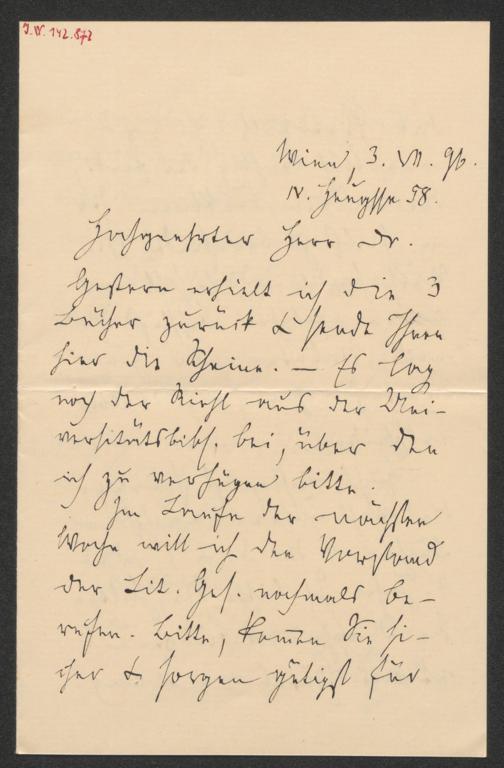 I.N. 142.872
Wien, 3. VII. 96.
IV. Heugasse 58.
Hochgeehrter Herr Dr.
Gestern erhielt ich die 3
Bücher zurück & sende Ihnen
hier die Scheine. — Es lag
noch der Riehl aus der Uni-
versitätsbibl. bei, über den
ich zu verfügen bitte.
Im Laufe der nächsten
Woche will ich den Vorstand
der Lit. Ges. nochmals be-
rufen. Bitte, kom̅en Sie si-
cher & sorgen gütigst für